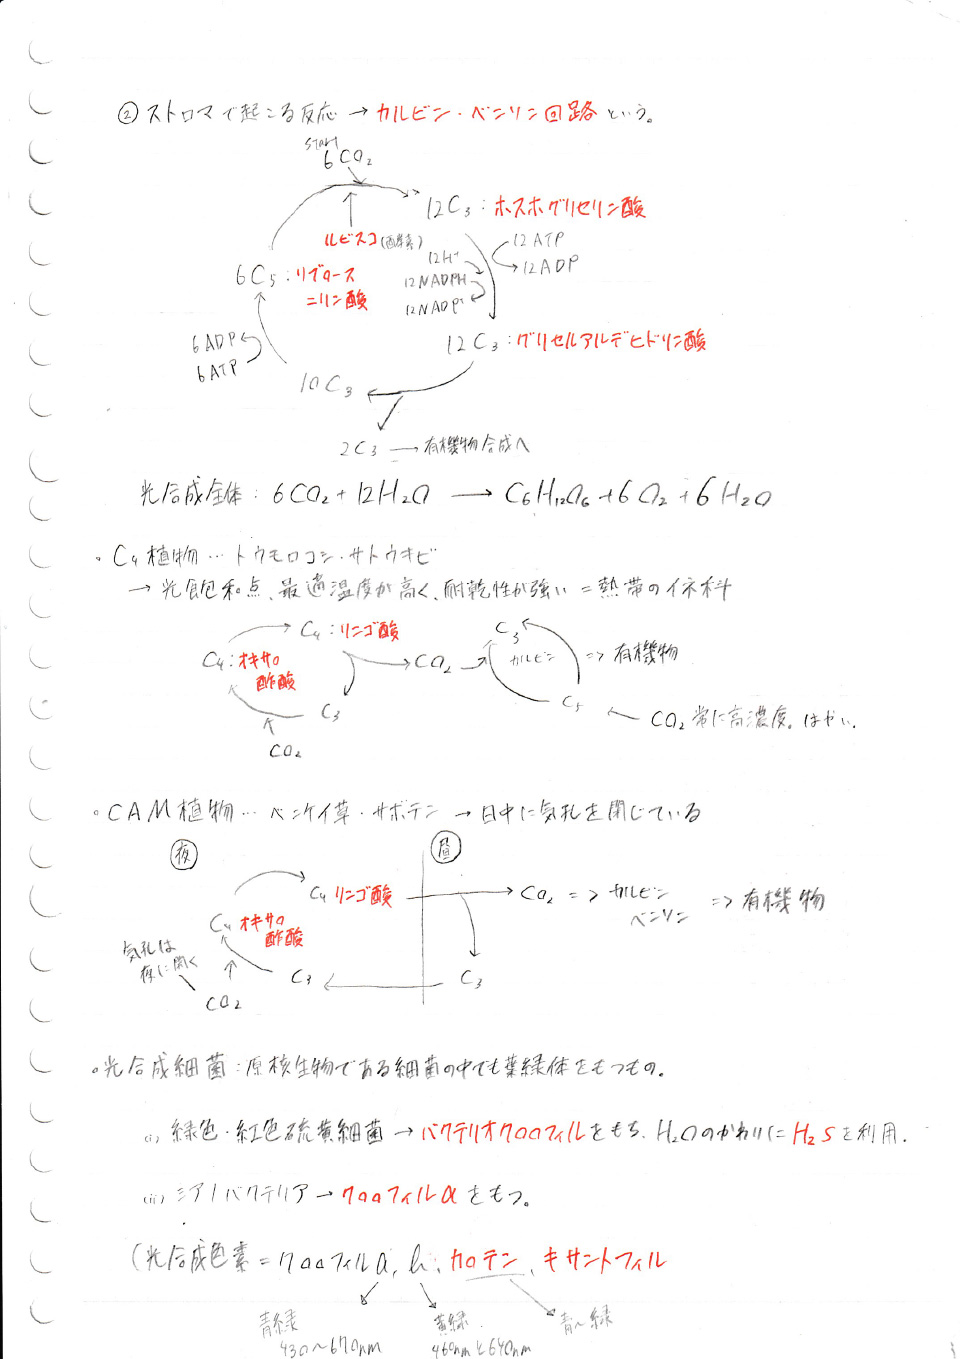 ② ストロマで起こる反応 → カルビン・ベンソン回路 という。
start
6CO₂
12C₃：ホスホグリセリン酸
ルビスコ(酵素)
12ATP
12ADP
12H⁺
12NADPH
12NADP⁺
6C₅：リブロース
二リン酸
12C₃：グリセルアルデヒドリン酸
6ADP
6ATP
10C₃
2C₃ → 有機物合成へ
光合成全体：6CO₂+12H₂O → C₆H₁₂O₆+6O₂+6H₂O
・C₄植物…トウモロコシ・サトウキビ
→ 光飽和点、最適温度が高く、耐乾性が強い = 熱帯のイネ科
C₄：リンゴ酸
C₃
C₄：オキサロ
酢酸
CO₂
カルビン
⇒ 有機物
C₃
C₅
← CO₂ 常に高濃度。はやい。
CO₂
・CAM植物…ベンケイ草・サボテン → 日中に気孔を閉じている
夜
昼
C₄ リンゴ酸
CO₂ ⇒ カルビン
ベンソン
⇒ 有機物
C₄ オキサロ
酢酸
気孔は
夜に開く
C₃
C₃
CO₂
・光合成細菌：原核生物である細菌の中でも葉緑体をもつもの。
(i) 緑色・紅色硫黄細菌 → バクテリオクロロフィルをもち、H₂Oのかわりに H₂S を利用.
(ii) シアノバクテリア → クロロフィルa をもつ。
(光合成色素 = クロロフィルa, b, カロテン、キサントフィル
青緑
430〜670nm
黄緑
460nmと640nm
青〜緑